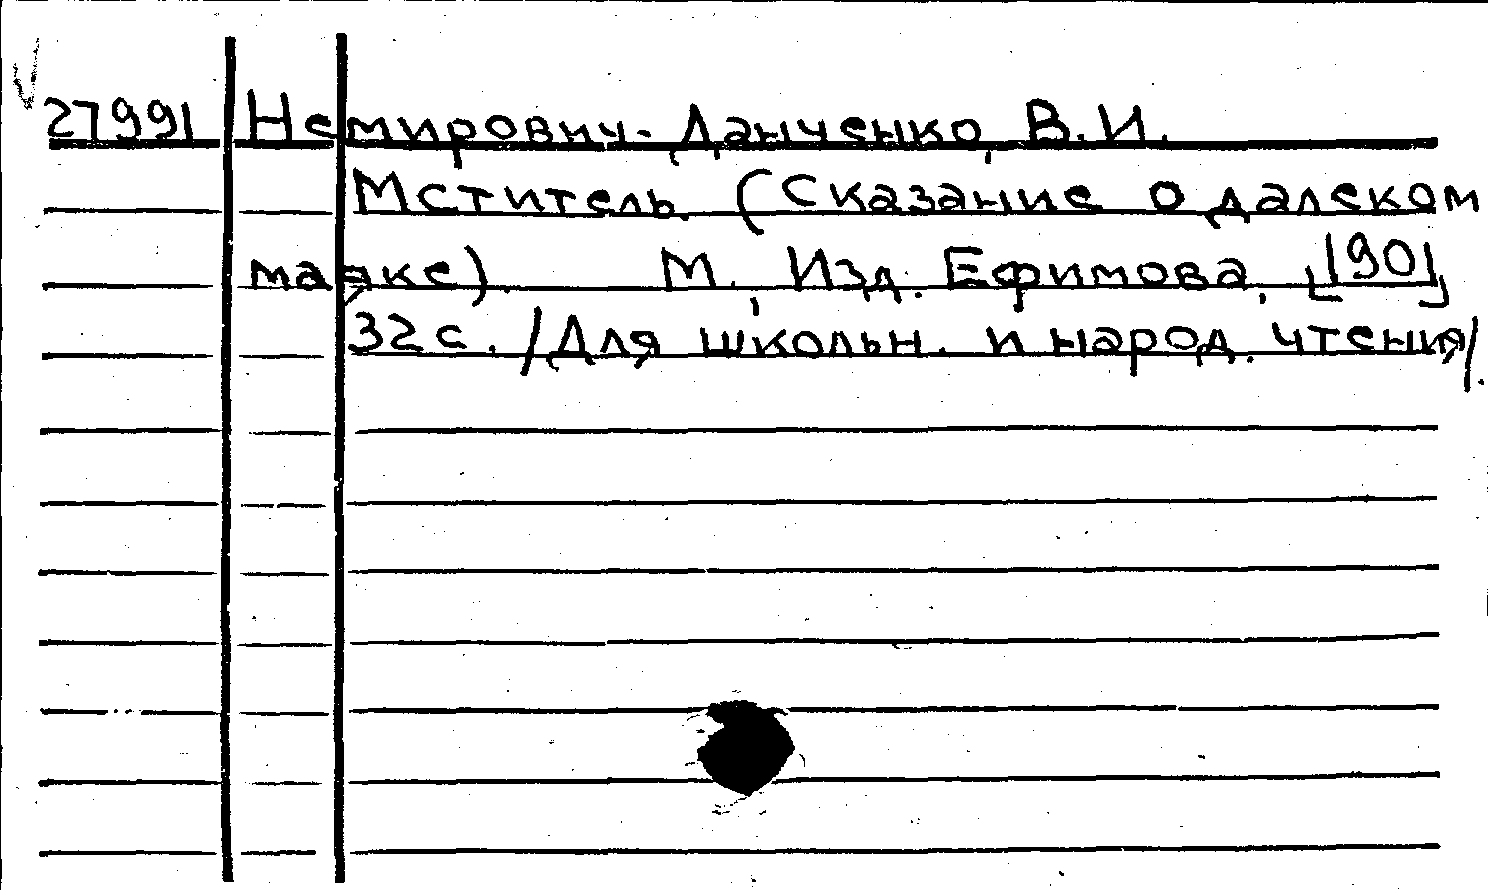 27991 Немирович-Данченко, В.И.
Мститель. (Сказание о далеком
маяке). М., Изд. Ефимова, [190]
32с. /Для школьн. и народ. чтения/.